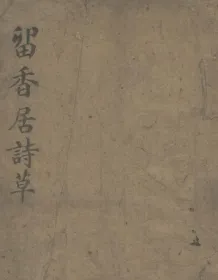 留香居詩草